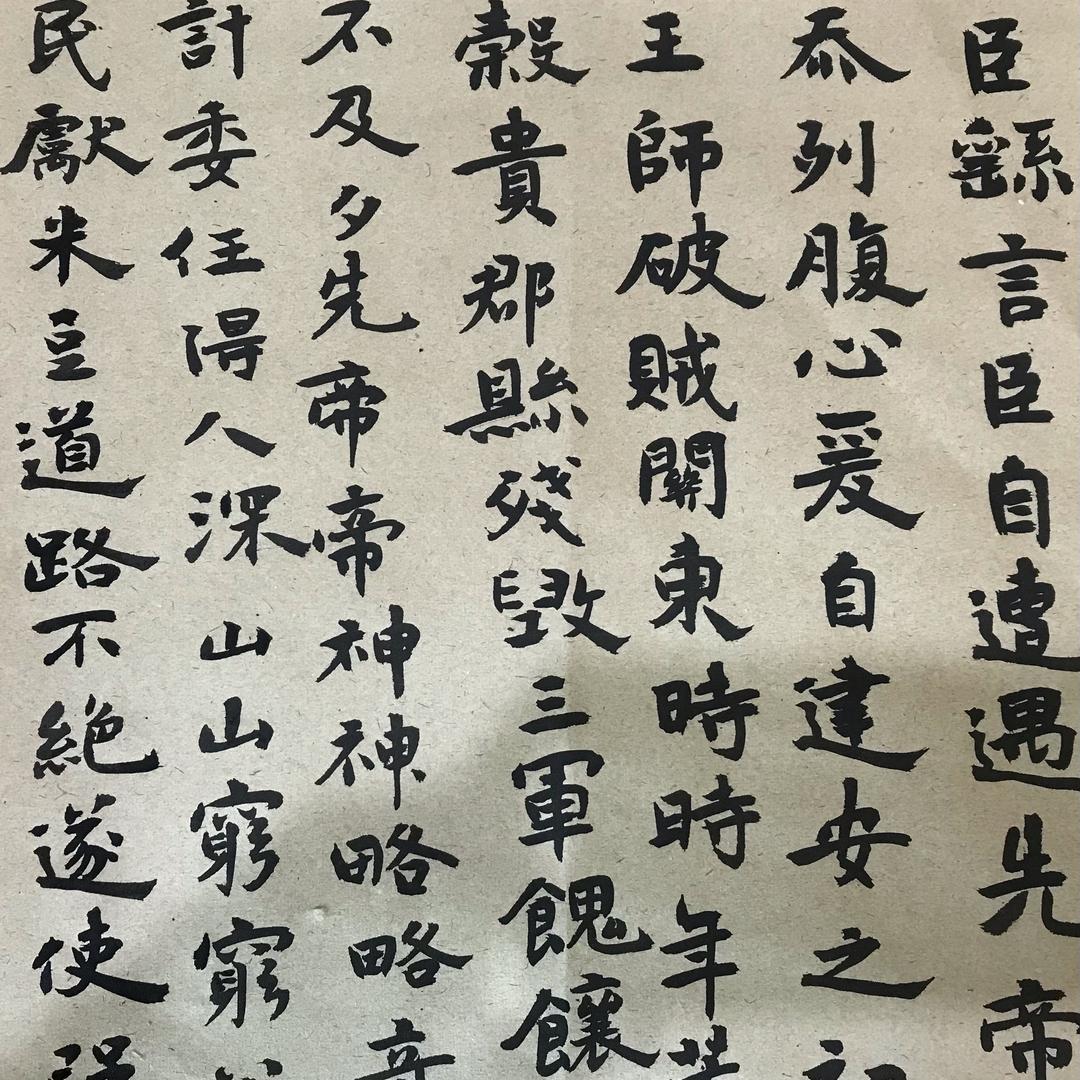 臣繇言臣自遭遇先帝
忝列腹心爰自建安之初
王師破賊關東時時年荒
穀貴郡縣殘毀三軍餽饟
不及夕先帝帝神神略略奇
計委任得人深山山窮窮
民獻米豆道路不絕遂使強